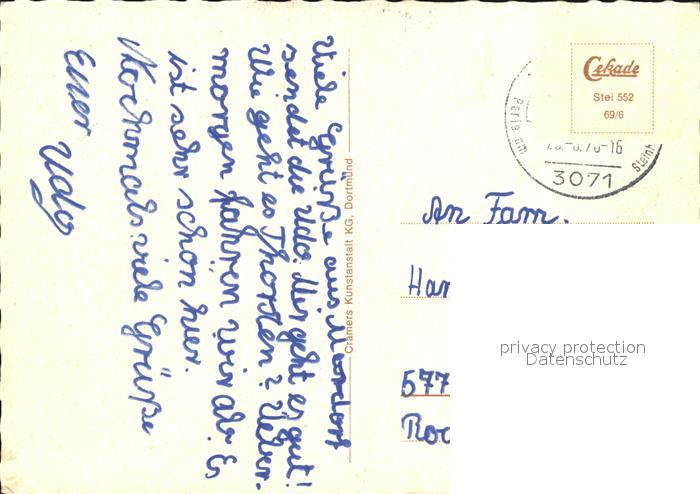 Viele Grüße aus Mardorf
sendet die Udo. Mir geht es gut!
Wie geht es Thorsten? Über-
morgen fahren wir ab. Es
ist sehr schön hier.
Nochmals viele Grüße
Euer
Udo
Cramers Kunstanstalt KG, Dortmund
Cekade
Stei 552
69/6
-16
3071
Steinh
An Fam.
Har
577
Roc
privacy protection
Datenschutz